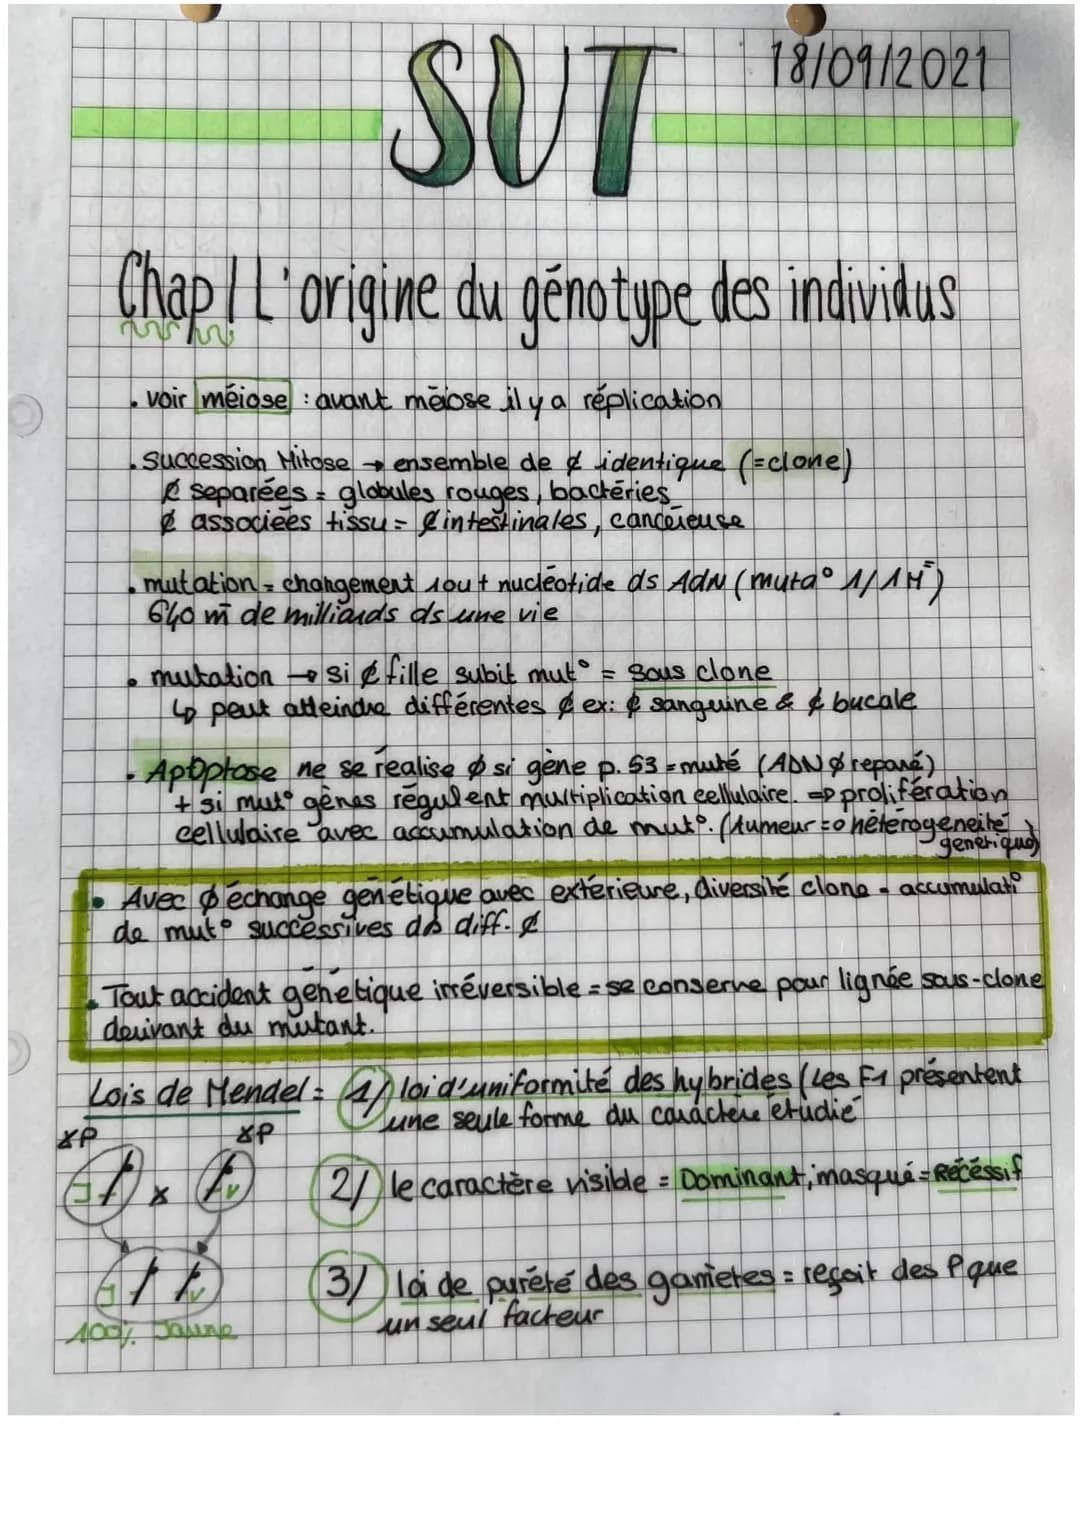 SVT
18/09/2021
Chap 1 L'origine du génotype des individus
. voir méiose : avant méiose il y a réplication
. succession Mitose → ensemble de ȼ identique (=clone)
ȼ separées = globules rouges, bactéries
ȼ associées tissu = ȼ intestinales, cancéreuse
. mutation = changement 1 ou + nucléotide ds ADN (muta° 1/1M
640 m de milliards ds une vie
. mutation → si ȼ fille subit mut° = sous clone
↳ peut atteindre différentes ȼ ex: ȼ sanguine & ȼ bucale
. Apoptose ne se réalise ø si gène p.53 = muté (ADN ø réparé)
+ si mut° gènes régulent multiplication cellulaire. ⇒ prolifération
cellulaire avec accumulation de mut°. (tumeur = hétérogeneité
genetique)
• Avec ø échange génétique avec extérieure, diversité clone = accumulati°
de mut° successives ds diff. ȼ
• Tout accident génetique irréversible = se conserve pour lignée sous-clone
derivant du mutant.
Lois de Mendel = 1/ loi d'uniformité des hybrides (Les F1 présentent
une seule forme du caractère étudié
XP XP
2/ le caractère visible = Dominant, masqué = Récéssif
J x V
3/ loi de pureté des gametes = reçoit des P que
un seul facteur
J V
100% Jaune